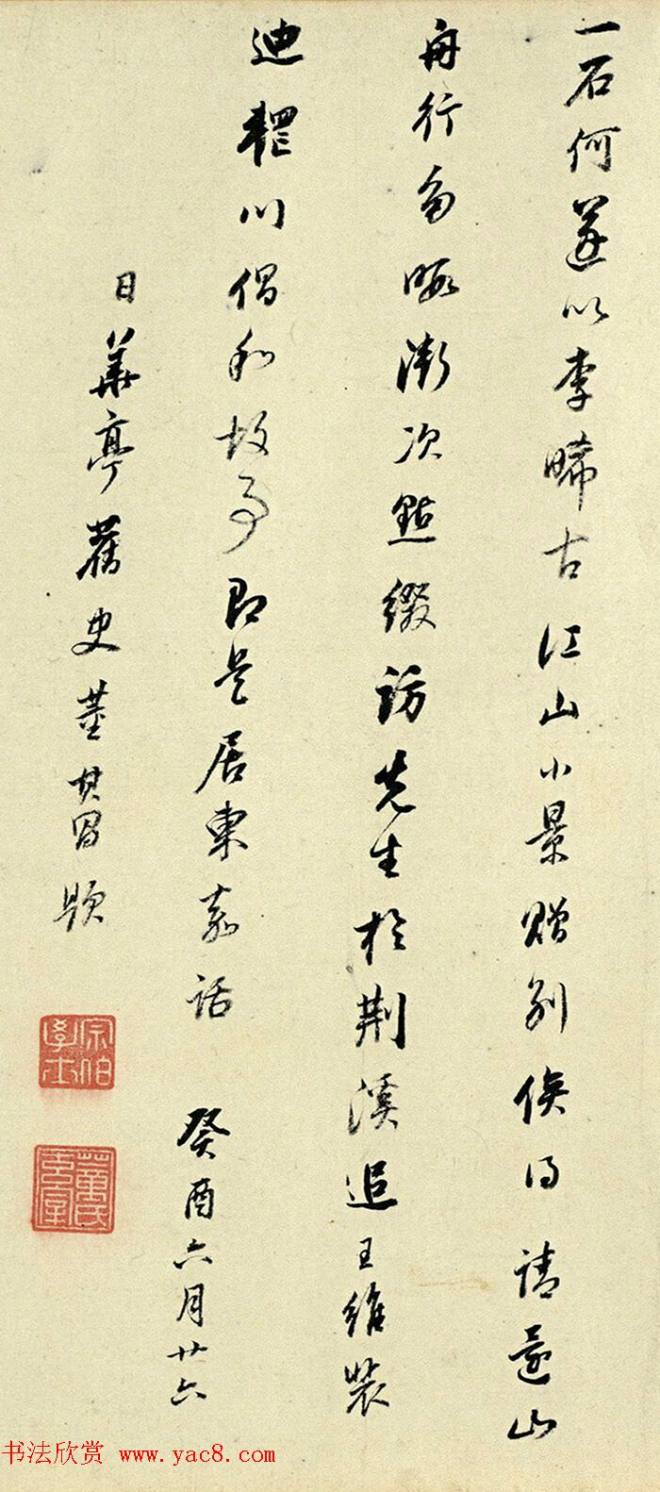 一石何遂以李晞古江山小景贈別俟得請還山
舟行多暇漸次點綴訪先生於荆溪追王維裴
迪輞川倡和故事即是居東嘉話 癸酉六月廿六
日華亭舊史董其昌題
宗伯學士
董氏玄宰
书法欣赏 www.yac8.com